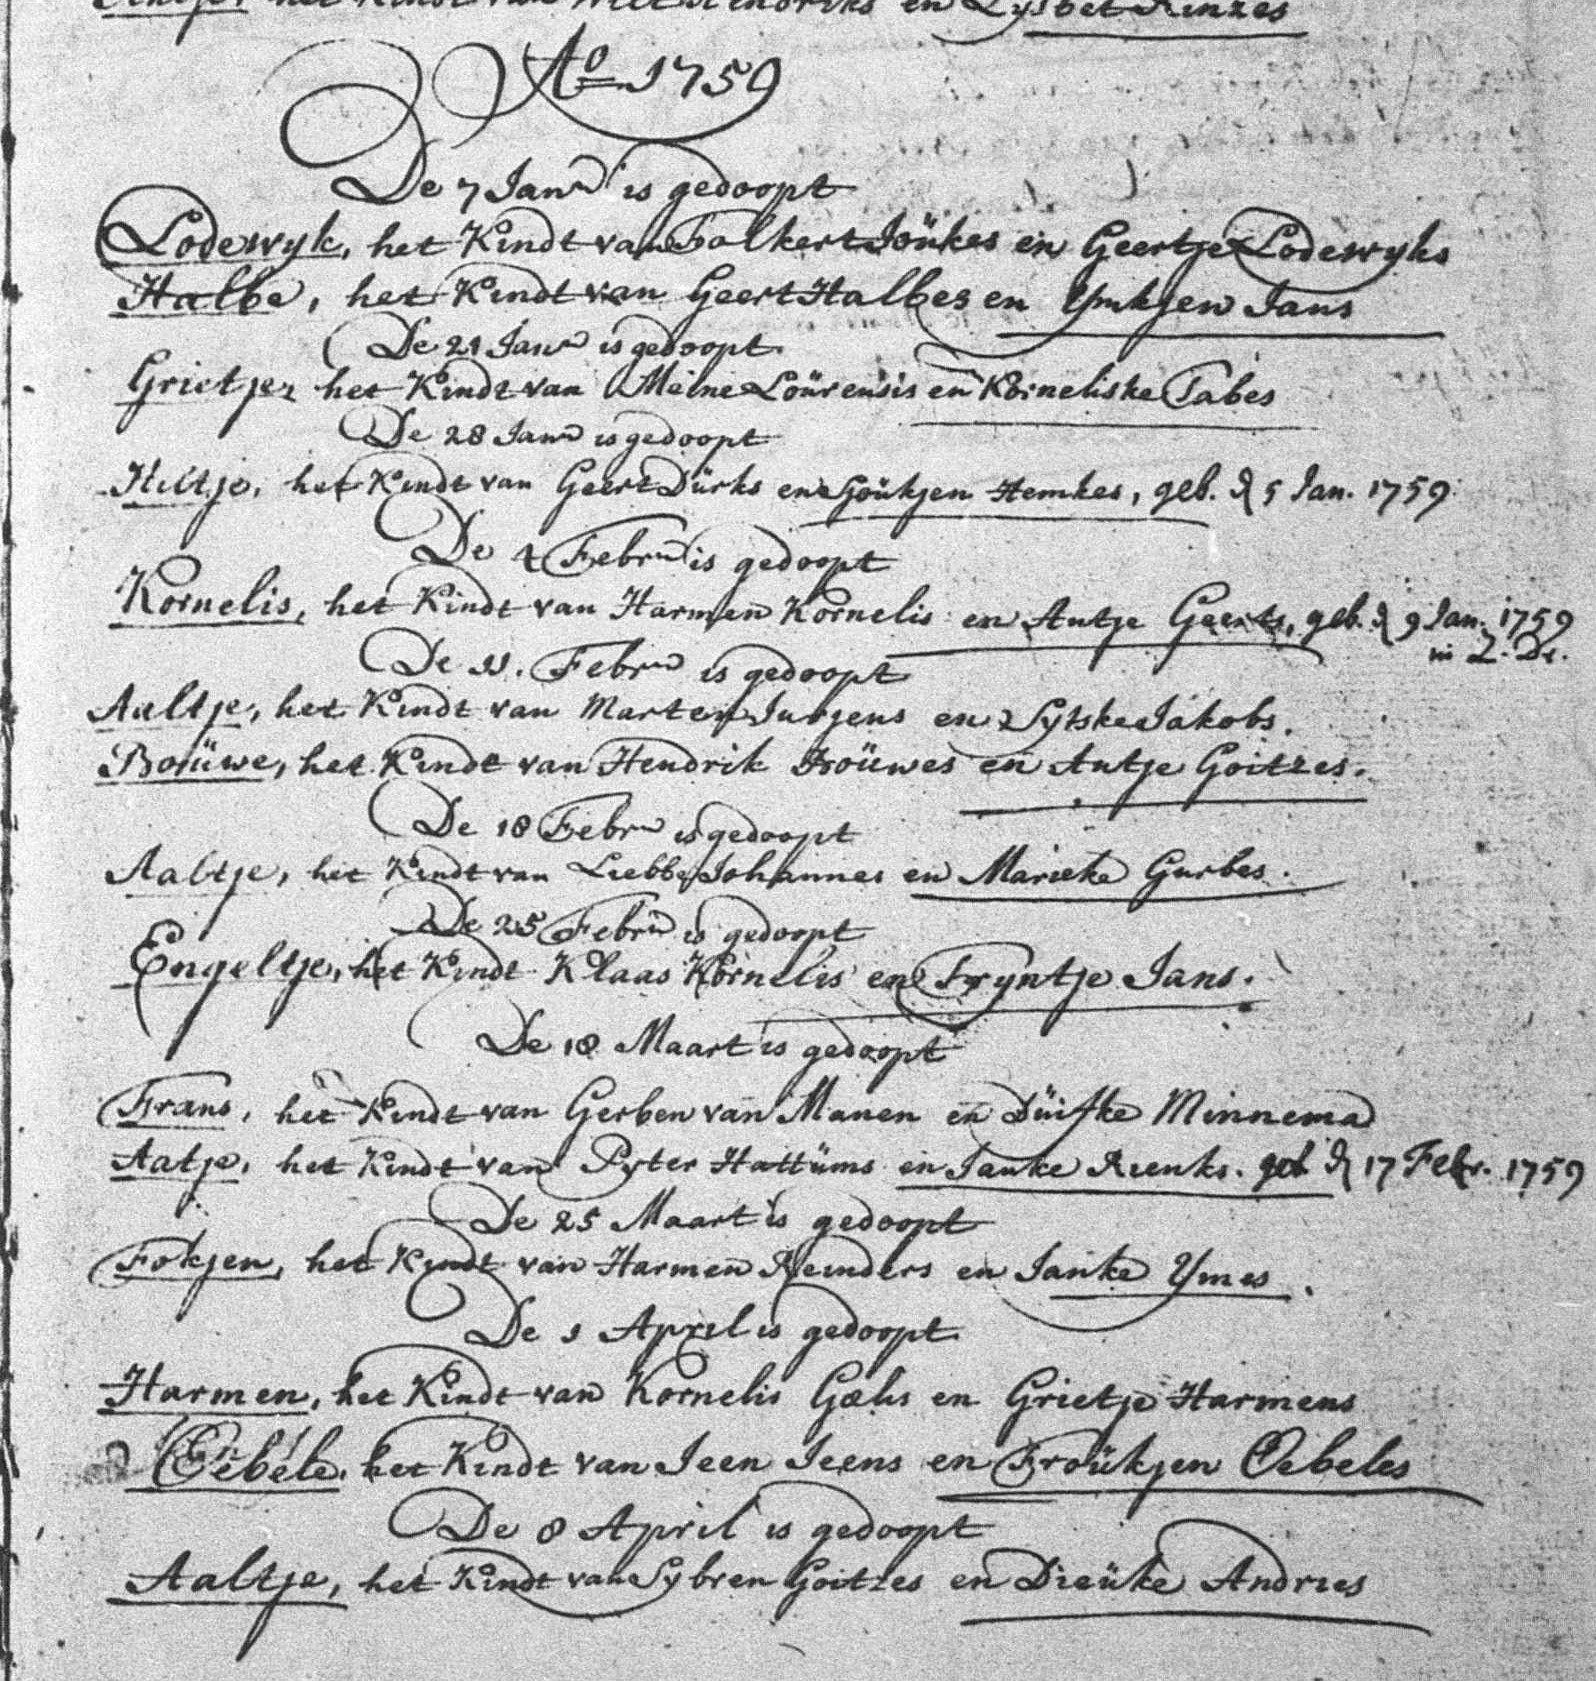 het Kindt van Hendriks en Lysbet Rinzes
Ao 1759
De 7 Janr is gedoopt
Lodewyk, het Kindt van Folkert Joükes en Geertje Lodewyks
Halbe, het Kindt van Geert Halbes en Ymkjen Jans
De 21 Janr is gedoopt
Grietje, het Kindt van Meine Loürensis en Korneliske Tabes
De 28 Janr is gedoopt
Hiltje, het Kindt van Geert Dürks en Joükjen Hemkes, geb. d 5 Jan. 1759
De 4 Febrr is gedoopt
Kornelis, het Kindt van Harmen Kornelis en Antje Geerts, geb. d 9 Jan. 1759
in Z. Dr.
De 11. Febrr is gedoopt
Aaltje, het Kindt van Marten Jurjens en Sytske Jakobs.
Boüwe, het Kindt van Hendrik Boüwes en Antje Goitzes.
De 18 Febrr is gedoopt
Aaltje, het Kindt van Liebbe Johannes en Marieke Gurbes.
De 25 Febrr is gedoopt
Engeltje, het Kindt Klaas Kornelis en Tryntje Jans.
De 18 Maart is gedoopt
Frans, het Kindt van Gerben van Manen en Düifke Minnema
Aatje, het Kindt van Pyter Hattüms en Janke Rienks. geb d 17 Febr. 1759
De 25 Maart is gedoopt
Fokjen, het Kindt van Harmen Reinders en Janke Ymes.
De 1 April is gedoopt
Harmen, het Kindt van Kornelis Gælis en Grietje Harmens
Oebele, het Kindt van Jeen Jeens en Froükjen Oebeles
De 8 April is gedoopt
Aaltje, het Kindt van Sybren Goitzes en Dieüke Andries